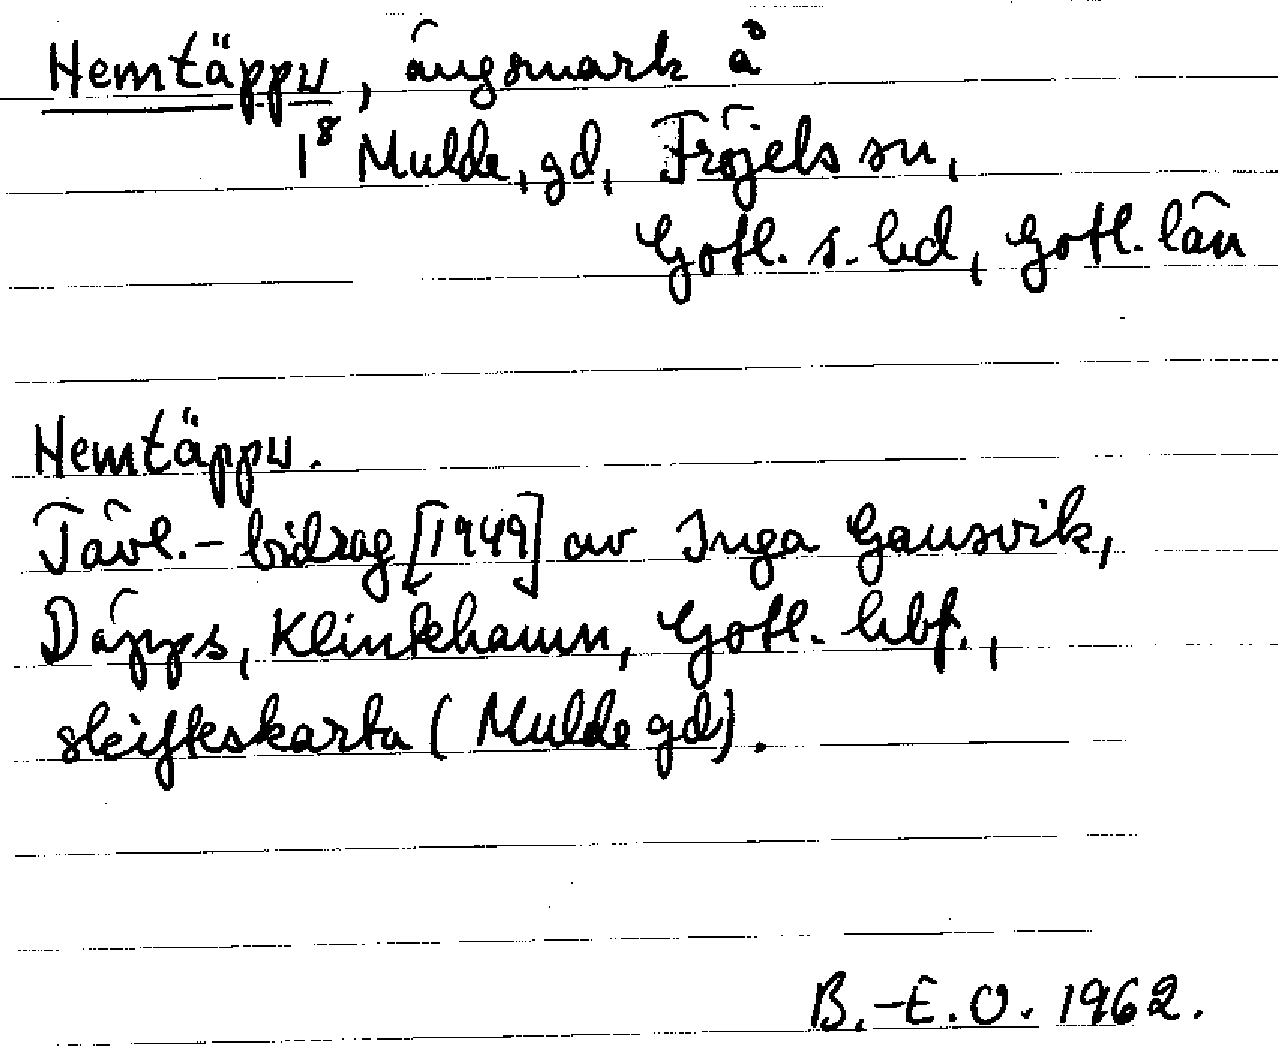 Hemtäppu, ängsmark å
1⁸ Mulde, gd, Fröjels sn,
Gotl. s. hd, Gotl. län
Hemtäppu.
Tävl.-bidrag [1949] av Inga Gansvik,
Däpps, Klintehamn, Gotl. hbf.,
skifteskarta (Mulde gd).
B.-E.O. 1962.